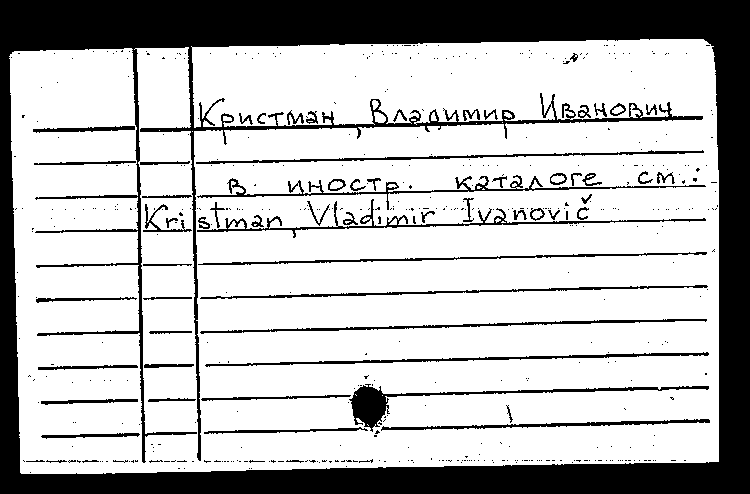 Кристман, Владимир Иванович
в иностр. каталоге см.:
Kristman, Vladimir Ivanovič